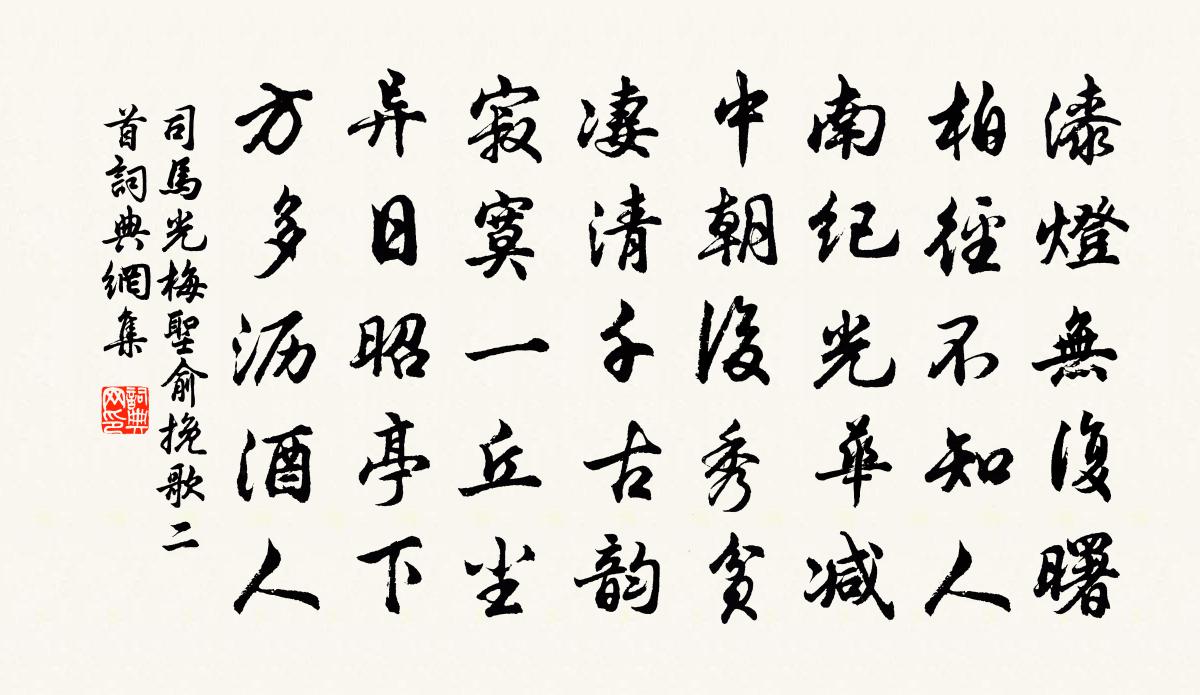 漆燈無復曙
柏徑不知人
南紀光華減
中朝俊秀貧
凄清千古韵
寂寞一丘尘
异日昭亭下
方多沥酒人
司馬光梅聖俞挽歌二
首詞典網集
詞典
网印